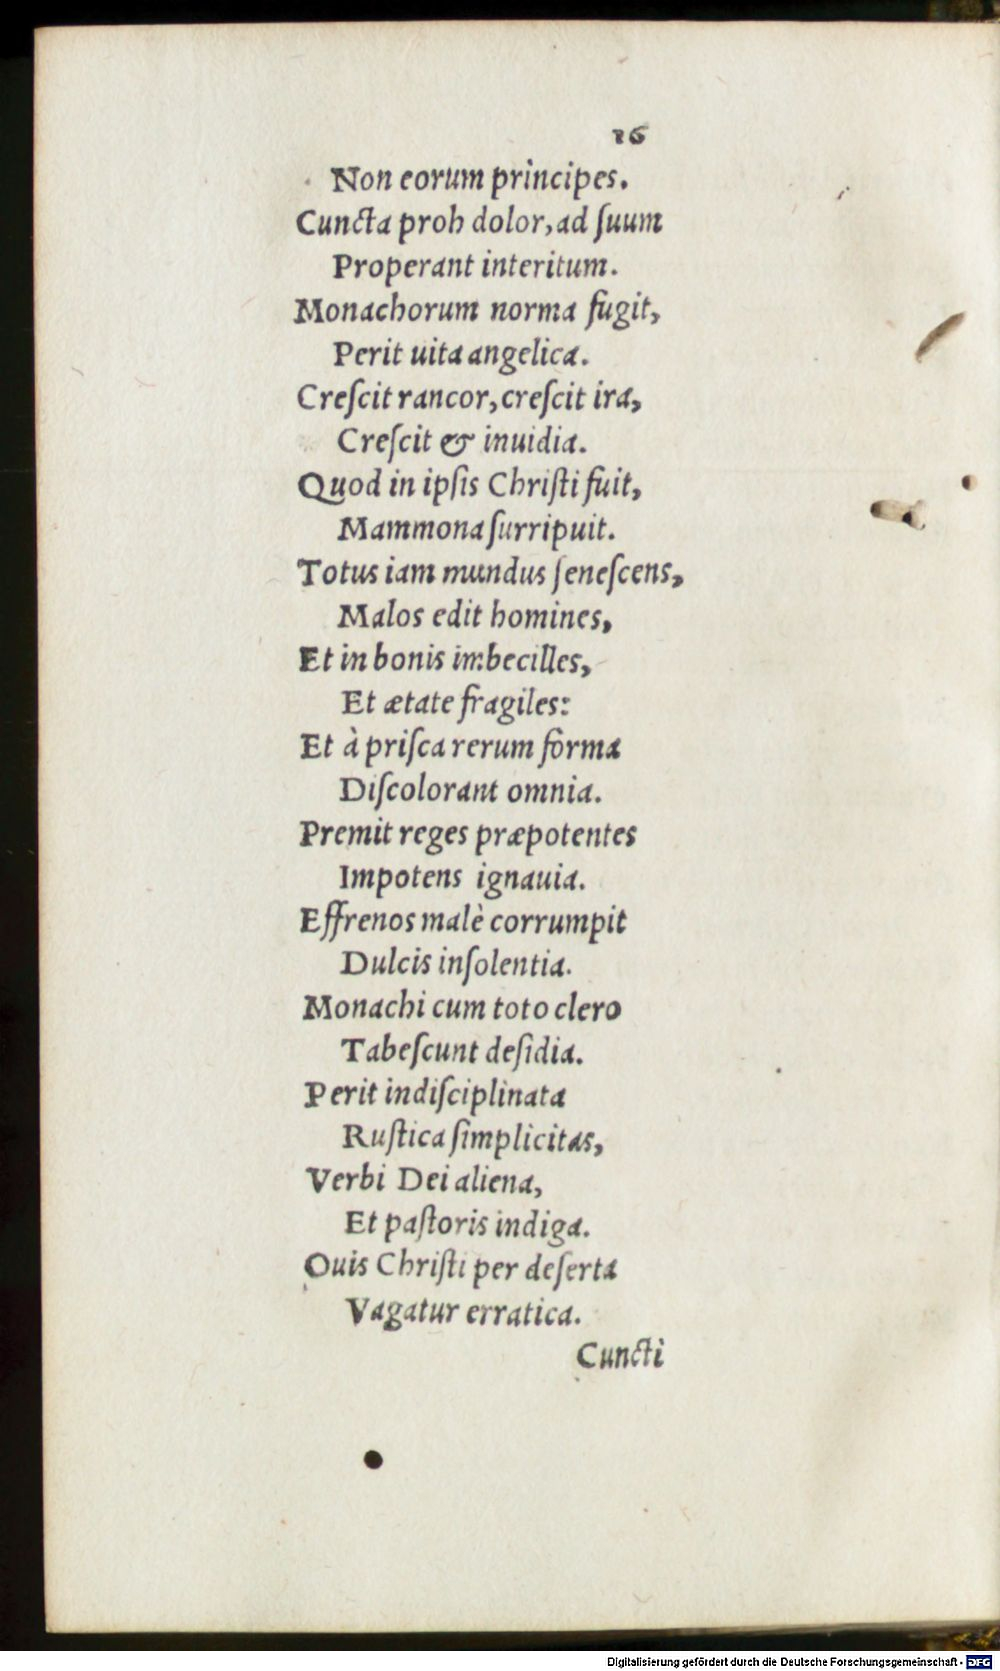 16
Non eorum principes.
Cuncta proh dolor, ad ſuum
Properant interitum.
Monachorum norma fugit,
Perit uita angelica.
Creſcit rancor, creſcit ira,
Creſcit & inuidia.
Quod in ipſis Chriſti fuit,
Mammona ſurripuit.
Totus iam mundus ſeneſcens,
Malos edit homines,
Et in bonis imbecilles,
Et ætate fragiles:
Et à priſca rerum forma
Diſcolorant omnia.
Premit reges præpotentes
Impotens ignauia.
Effrenos malè corrumpit
Dulcis inſolentia.
Monachi cum toto clero
Tabeſcunt deſidia.
Perit indiſciplinata
Ruſtica ſimplicitas,
Verbi Dei aliena,
Et paſtoris indiga.
Ouis Chriſti per deſerta
Vagatur erratica.
Cuncti
Digitalisierung gefördert durch die Deutsche Forschungsgemeinschaft - DFG